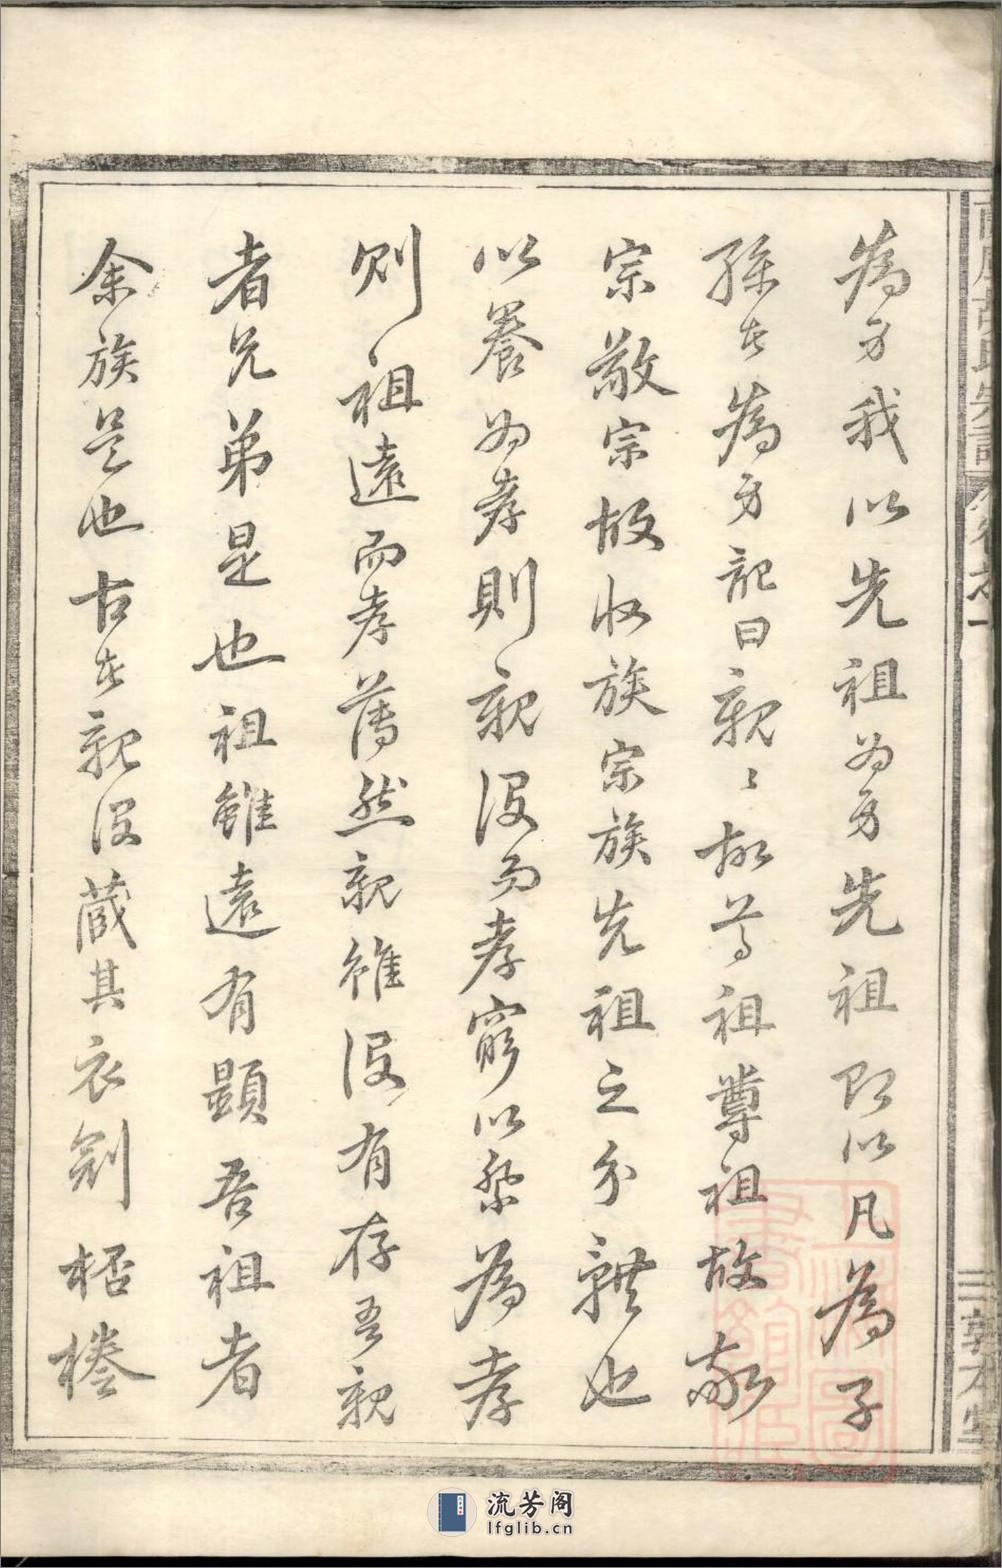 為身我以先祖為身先祖即以凡為子
孫者為身記曰親親故尊祖尊祖故敬
宗敬宗故收族宗族先祖之分體也
以養為孝則親沒而孝窮以祭為孝
則祖遠而孝薄然親雖沒有存吾親
者兄弟是也祖雖遠有顯吾祖者
余族是也古者親沒藏其衣劍桮棬
胡氏宗譜 卷之一
三 敦本堂
流芳阁
lfglib.cn